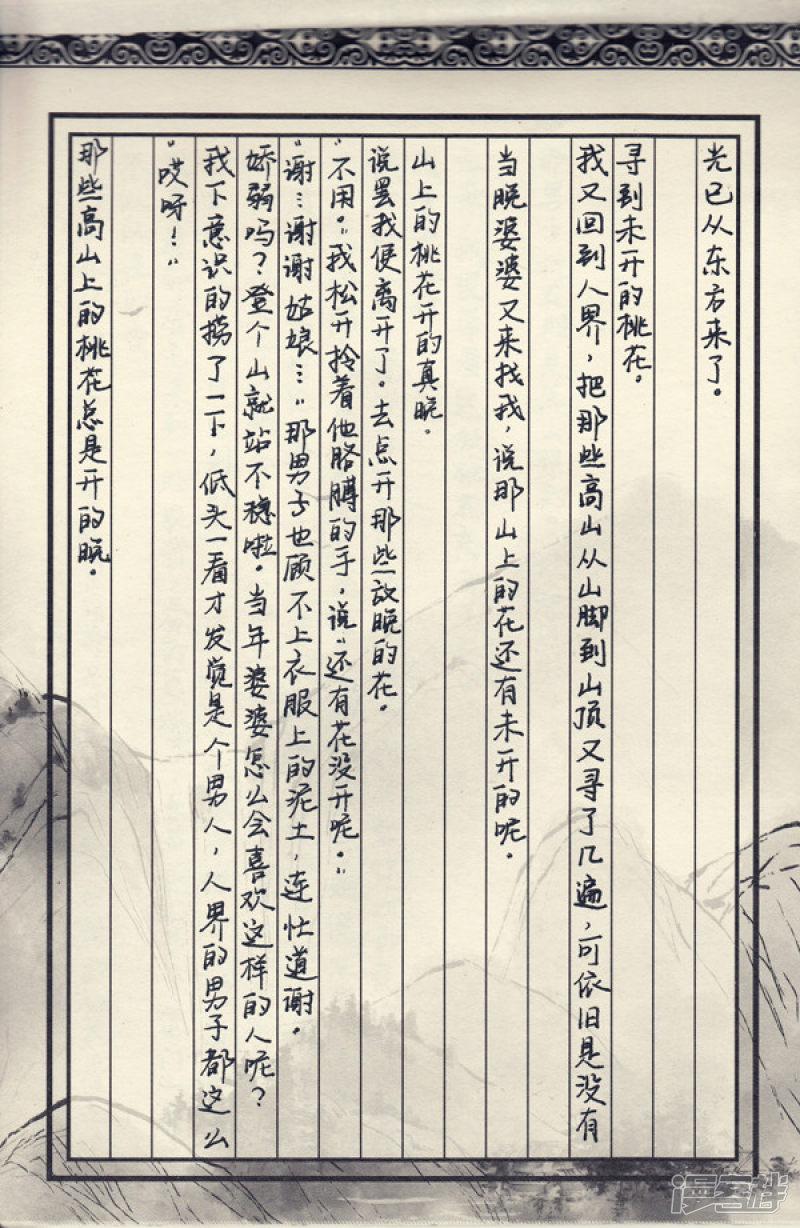 那些高山上的桃花总是开的晚。
“哎呀！”
我下意识的捞了一下，低头一看才发觉是个男人，人界的男子都这么
娇弱吗？登个山就站不稳啦。当年婆婆怎么会喜欢这样的人呢？
“谢…谢谢姑娘…”那男子也顾不上衣服上的泥土，连忙道谢。
“不用。”我松开拎着他胳膊的手，说“还有花没开呢。”
说罢我便离开了。去点开那些放晚的花。
山上的桃花开的真晚。
当晚婆婆又来找我，说那山上的花还有未开的呢。
我又回到人界，把那些高山从山脚到山顶又寻了几遍，可依旧是没有
寻到未开的桃花。
光已从东方来了。